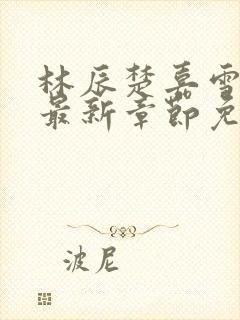 林辰楚嘉雪
最新章节免
波尼